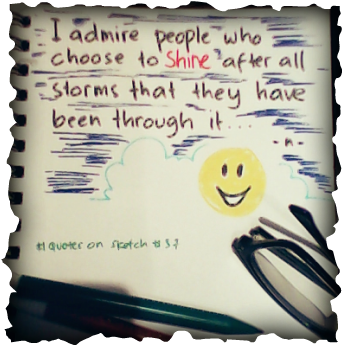 I admire people who
choose to Shine after all
storms that they have
been through it...
-n-